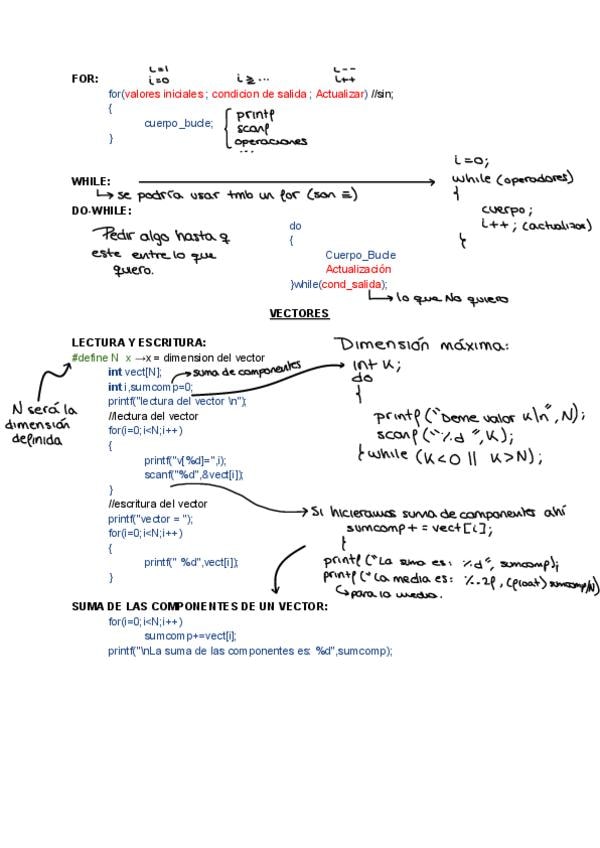 i=1 i--
FOR: i=0 i≥... i++
for(valores iniciales ; condicion de salida ; Actualizar) //sin;
{
cuerpo_bucle;
}
printf
scanf
operaciones
...
WHILE:
↳ se podría usar tmb un for (son ≡)
i=0;
while (operadores)
{
cuerpo;
i++; (actualizar)
}
DO-WHILE:
Pedir algo hasta q
este entre lo que
quiero.
do
{
Cuerpo_Bucle
Actualización
}while(cond_salida);
↳ lo que No quiero
VECTORES
LECTURA Y ESCRITURA:
#define N x →x = dimension del vector
int vect[N];
int i,sumcomp=0;
→suma de componentes
printf("lectura del vector \n");
//lectura del vector
for(i=0;i<N;i++)
{
printf("v[%d]=",i);
scanf("%d",&vect[i]);
}
//escritura del vector
printf("vector = ");
for(i=0;i<N;i++)
{
printf(" %d",vect[i]);
}
N será la
dimensión
definida
Dimensión máxima:
int K;
do
{
printf ("Deme valor K\n", N);
scanf ("%d ", K);
} while (K<0 || K>N);
Si hicieramos suma de componentes ahí
sumcomp + = vect [i];
}
printf ("La suma es: %d", sumcomp);
printf ("La media es: %.2f, (float) sumcomp/N)
↳para la media.
SUMA DE LAS COMPONENTES DE UN VECTOR:
for(i=0;i<N;i++)
sumcomp+=vect[i];
printf("\nLa suma de las componentes es: %d",sumcomp);